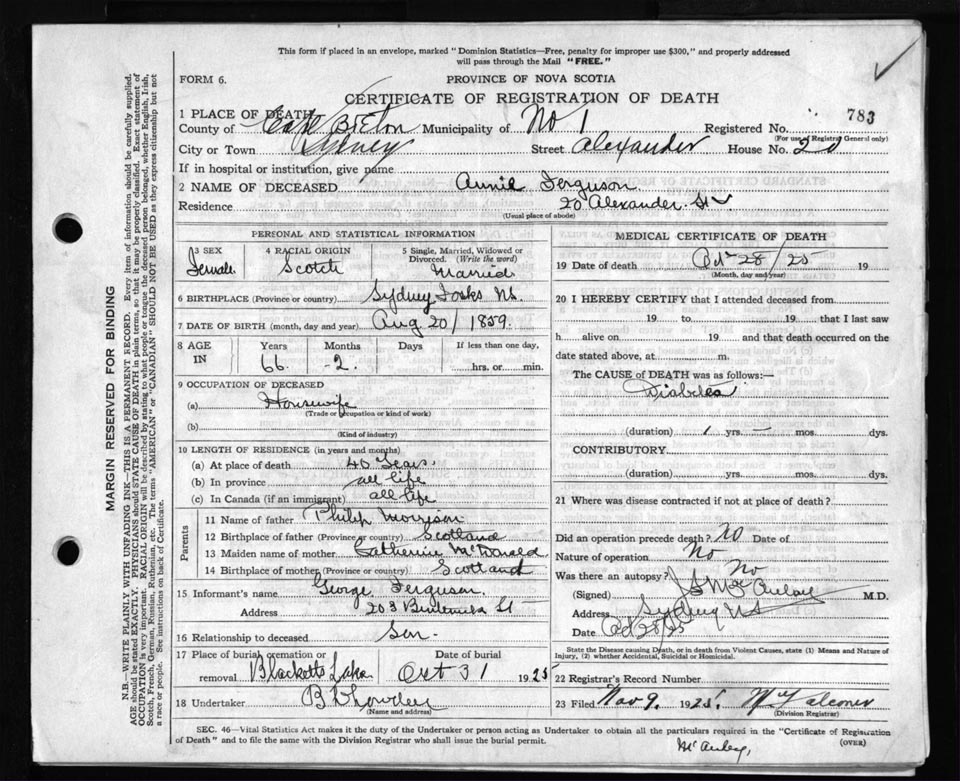 This form if placed in an envelope, marked "Dominion Statistics—Free, penalty for improper use $300," and properly addressed
will pass through the Mail "FREE."
FORM 6.
PROVINCE OF NOVA SCOTIA
CERTIFICATE OF REGISTRATION OF DEATH
1 PLACE OF DEATH
783
County of Cape Breton Municipality of No 1 Registered No.
(For use of Registrar General only)
City or Town Sydney Street Alexander House No. 20
If in hospital or institution, give name
2 NAME OF DECEASED Annie Ferguson
Residence 20 Alexander St
(Usual place of abode)
PERSONAL AND STATISTICAL INFORMATION
3 SEX Female
4 RACIAL ORIGIN Scotch
5 Single, Married, Widowed or Divorced. (Write the word) Married
6 BIRTHPLACE (Province or country) Sydney Forks NS.
7 DATE OF BIRTH (month, day and year) Aug 20/1859.
8 AGE IN Years Months Days If less than one day,
66 -2. hrs. or min.
9 OCCUPATION OF DECEASED
(a) Housewife
(Trade or occupation or kind of work)
(b)
(Kind of industry)
10 LENGTH OF RESIDENCE (in years and months)
(a) At place of death 40 Years.
(b) In province all life
(c) In Canada (if an immigrant) all life
Parents
11 Name of father Philip Morrison
12 Birthplace of father (Province or country) Scotland
13 Maiden name of mother Catherine McDonald
14 Birthplace of mother (Province or country) Scotland
15 Informant's name George Ferguson
Address 203 St
16 Relationship to deceased Son.
17 Place of burial cremation or removal Blacketts Lake Date of burial Oct 31 1925
18 Undertaker
(Name and address)
MEDICAL CERTIFICATE OF DEATH
19 Date of death Oct 28/25 19
(Month, day and year)
20 I HEREBY CERTIFY that I attended deceased from
19 to 19 that I last saw
h alive on 19 and that death occurred on the
date stated above, at m.
The CAUSE OF DEATH was as follows:—
Diabetes
(duration) 1 yrs. – mos. dys.
CONTRIBUTORY
(duration) yrs. mos. dys.
21 Where was disease contracted if not at place of death?
Did an operation precede death? No Date of
Nature of operation No
Was there an autopsy? No
(Signed) McAulay M.D.
Address Sydney NS
Date Oct 28/25
State the Disease causing Death, or in death from Violent Causes, state (1) Means and Nature of
Injury, (2) whether Accidental, Suicidal or Homicidal.
22 Registrar's Record Number
23 Filed Nov 9. 1925. Falconer
(Division Registrar)
SEC. 46—Vital Statistics Act makes it the duty of the Undertaker or person acting as Undertaker to obtain all the particulars required in the "Certificate of Registration
of Death" and to file the same with the Division Registrar who shall issue the burial permit.
(OVER)
McAuley,
MARGIN RESERVED FOR BINDING
N.B.—WRITE PLAINLY WITH UNFADING INK—THIS IS A PERMANENT RECORD. Every item of information should be carefully supplied.
AGE should be stated EXACTLY. PHYSICIANS should STATE CAUSE OF DEATH in plain terms, so that it may be properly classified. Exact statement of
OCCUPATION is very important. RACIAL ORIGIN will be described by stating to what people or tongue the deceased person belonged, whether English, Irish,
Scotch, French, German, Russian, Ruthenian, etc. The terms "AMERICAN" or "CANADIAN" SHOULD NOT BE USED as they express citizenship but not
a race or people. See instructions on back of Certificate.